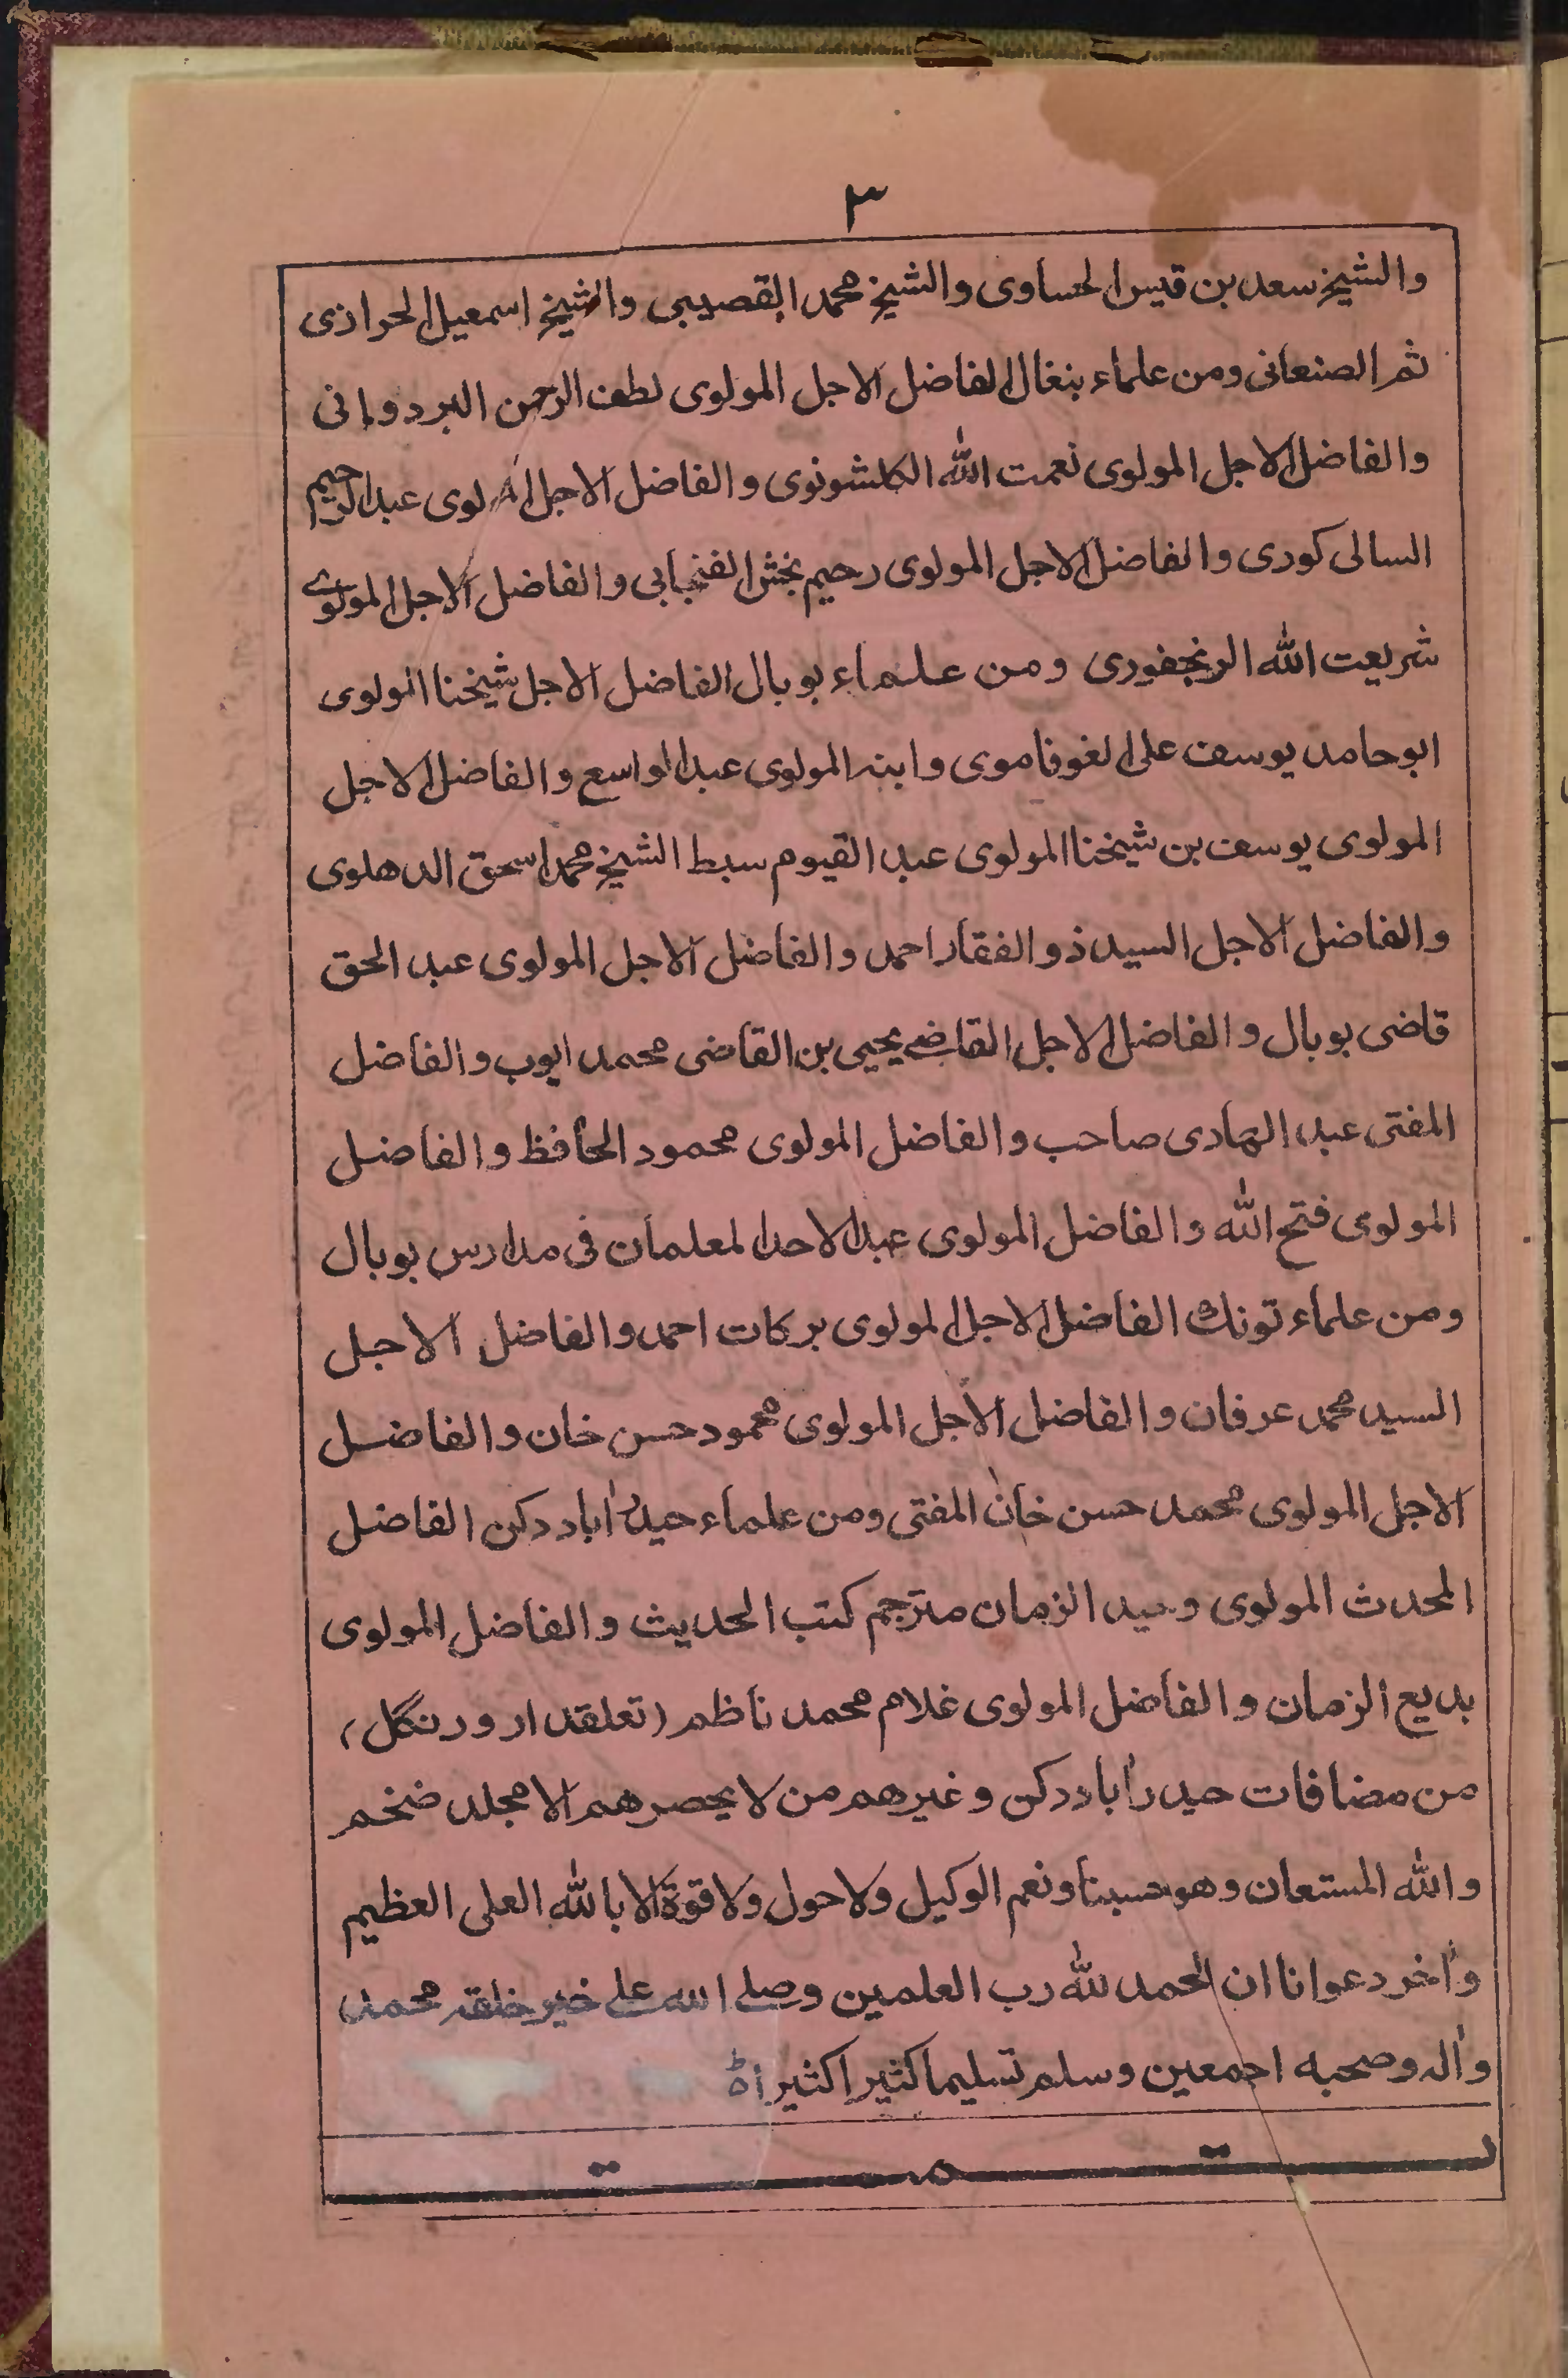 ٣
والشيخ سعد بن قيس الحساوى والشيخ محمد القصيبى والشيخ اسمعيل الحرازى
ثم الصنعانى ومن علماء بنغال الفاضل الاجل المولوى لطف الرحمن البردوانى
والفاضل الاجل المولوى نعمت الله الكلشونوى والفاضل الاجل المولوى عبد الرحيم
السالى كورى والفاضل الاجل المولوى رحيم بخش الفنجابى والفاضل الاجل المولوى
شريعت الله الرنجفورى ومن علماء بوبال الفاضل الاجل شيخنا المولوى
ابوحامد يوسف على الغوفاموى وابنه المولوى عبد الواسع والفاضل الاجل
المولوى يوسف بن شيخنا المولوى عبد القيوم سبط الشيخ محمد اسحق الدهلوى
والفاضل الاجل السيد ذوالفقار احمد والفاضل الاجل المولوى عبد الحق
قاضى بوبال والفاضل الاجل القاضى يحيى بن القاضى محمد ايوب والفاضل
المفتى عبد الهادى صاحب والفاضل المولوى محمود الحافظ والفاضل
المولوى فتح الله والفاضل المولوى عبد الاحد المعلمان فى مدارس بوبال
ومن علماء تونك الفاضل الاجل المولوى بركات احمد والفاضل الاجل
السيد محمد عرفان والفاضل الاجل المولوى محمود حسن خان والفاضل
الاجل المولوى محمد حسن خان المفتى ومن علماء حيدرآباد دكن الفاضل
المحدث المولوى وحيد الزمان مترجم كتب الحديث والفاضل المولوى
بديع الزمان والفاضل المولوى غلام محمد ناظم (تعلقدار ورنگل)
من مضافات حيدرآباد دكن وغيرهم من لا يحصرهم الا مجلد ضخم
والله المستعان وهو حسبنا ونعم الوكيل ولا حول ولا قوة الا بالله العلى العظيم
وآخر دعوانا ان الحمد لله رب العلمين وصلى الله على خير خلقه محمد
وآله وصحبه اجمعين وسلم تسليما كثيرا كثيرا
تمت